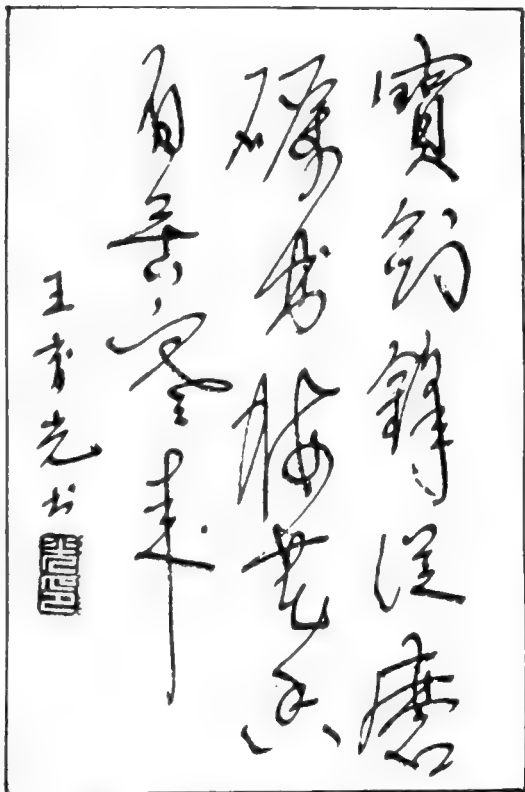 寶劍鋒從磨
礪出梅花香
自苦寒来
王育光书